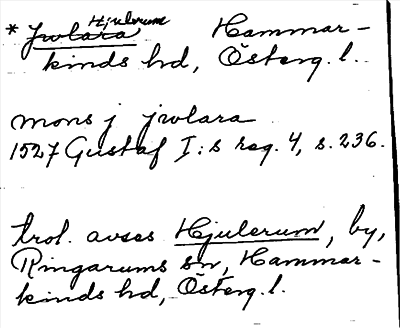 Hjulerum
* Jwlara Hammar-
kinds hd, Österg. l.
mons j jwlara
1527 Gustaf I:s reg. 4, s. 236.
trol. avses Hjulerum, by,
Ringarums sn, Hammar-
kinds hd, Österg. l.